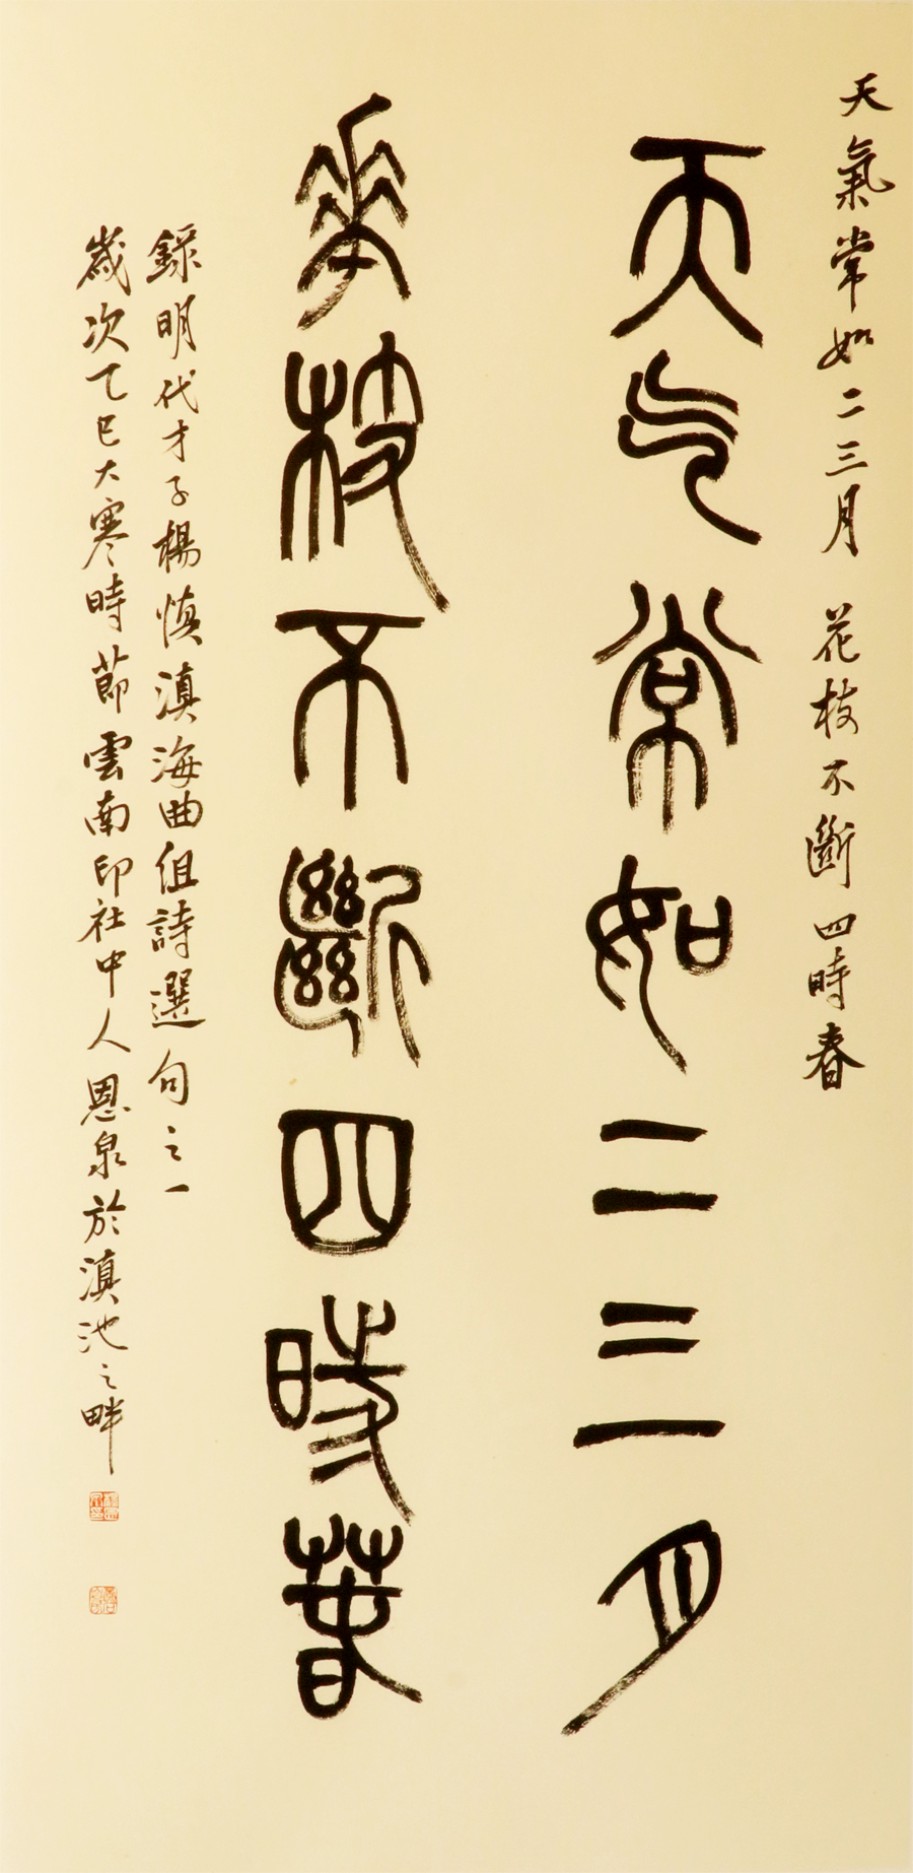 天氣常如二三月 花枝不斷四時春
天气常如二三月
華枝不斷四時萅
錄明代才子楊慎滇海曲組詩選句之一
歲次乙巳大寒時節雲南印社中人恩泉於滇池之畔